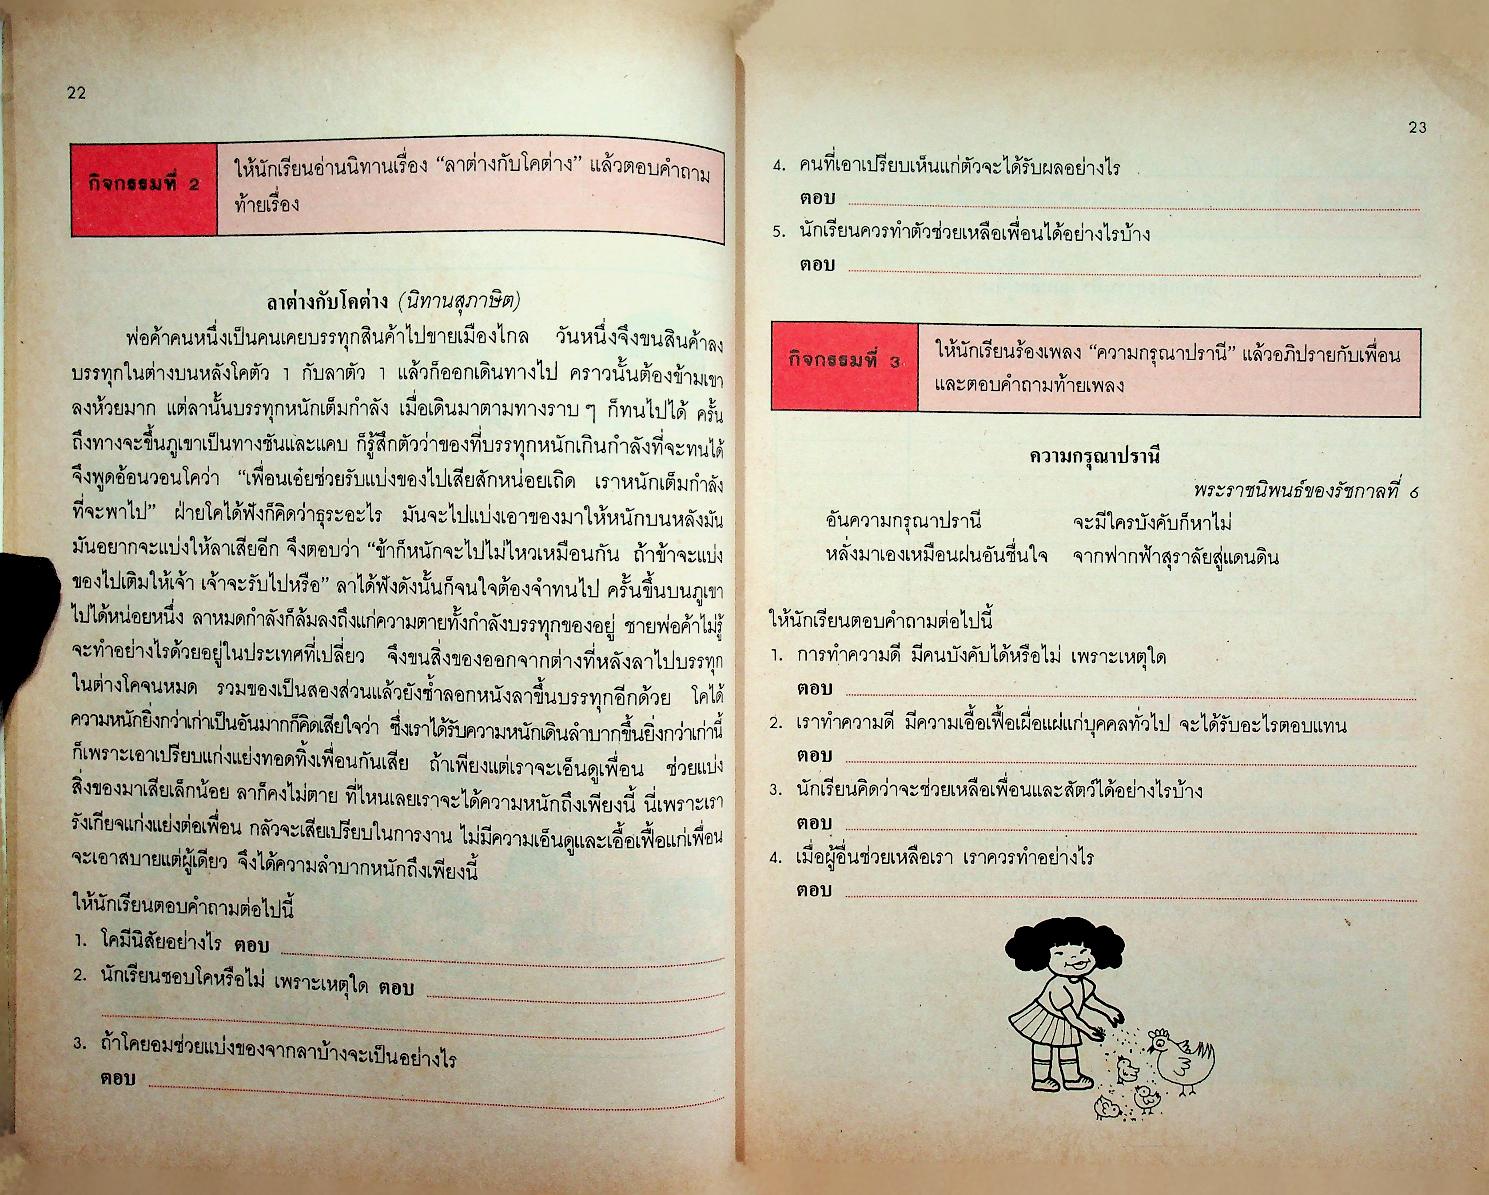 22
กิจกรรมที่ 2
ให้นักเรียนอ่านนิทานเรื่อง “ลาต่างกับโคต่าง” แล้วตอบคำถาม
ท้ายเรื่อง
ลาต่างกับโคต่าง (นิทานสุภาษิต)
พ่อค้าคนหนึ่งเป็นคนเคยบรรทุกสินค้าไปขายเมืองไกล วันหนึ่งจึงขนสินค้าลง
บรรทุกในต่างบนหลังโคตัว 1 กับลาตัว 1 แล้วก็ออกเดินทางไป คราวนั้นต้องข้ามเขา
ลงห้วยมาก แต่ลานั้นบรรทุกหนักเต็มกำลัง เมื่อเดินมาตามทางราบ ๆ ก็ทนไปได้ ครั้น
ถึงทางจะขึ้นภูเขาเป็นทางชันและแคบ ก็รู้สึกตัวว่าของที่บรรทุกหนักเกินกำลังที่จะทนได้
จึงพูดอ้อนวอนโคว่า “เพื่อนเอ๋ยช่วยรับแบ่งของไปเสียสักหน่อยเถิด เราหนักเต็มกำลัง
ที่จะพาไป” ฝ่ายโคได้ฟังก็คิดว่าธุระอะไร มันจะไปแบ่งเอาของมาให้หนักบนหลังมัน
มันอยากจะแบ่งให้ลาเสียอีก จึงตอบว่า “ข้าก็หนักจะไปไม่ไหวเหมือนกัน ถ้าข้าจะแบ่ง
ของไปเติมให้เจ้า เจ้าจะรับไปหรือ” ลาได้ฟังดังนั้นก็จนใจต้องจำทนไป ครั้นขึ้นบนภูเขา
ไปได้หน่อยหนึ่ง ลาหมดกำลังก็ล้มลงถึงแก่ความตายทั้งกำลังบรรทุกของอยู่ ชายพ่อค้าไม่รู้
จะทำอย่างไรด้วยอยู่ในประเทศที่เปลี่ยว จึงขนสิ่งของออกจากต่างที่หลังลาไปบรรทุก
ในต่างโคจนหมด รวมของเป็นสองส่วนแล้วยังซ้ำลอกหนังลาขึ้นบรรทุกอีกด้วย โคได้
ความหนักยิ่งกว่าเก่าเป็นอันมากก็คิดเสียใจว่า ซึ่งเราได้รับความหนักเดินลำบากขึ้นยิ่งกว่าเก่านี้
ก็เพราะเอาเปรียบแก่งแย่งทอดทิ้งเพื่อนกันเสีย ถ้าเพียงแต่เราจะเอ็นดูเพื่อน ช่วยแบ่ง
สิ่งของมาเสียเล็กน้อย ลาก็คงไม่ตาย ที่ไหนเลยเราจะได้ความหนักถึงเพียงนี้ นี่เพราะเรา
รังเกียจแก่งแย่งต่อเพื่อน กลัวจะเสียเปรียบในการงาน ไม่มีความเอ็นดูและเอื้อเฟื้อแก่เพื่อน
จะเอาสบายแต่ผู้เดียว จึงได้ความลำบากหนักถึงเพียงนี้
ให้นักเรียนตอบคำถามต่อไปนี้
1. โคมีนิสัยอย่างไร ตอบ
2. นักเรียนชอบโคหรือไม่ เพราะเหตุใด ตอบ
3. ถ้าโคยอมช่วยแบ่งของจากลาบ้างจะเป็นอย่างไร
ตอบ
23
4. คนที่เอาเปรียบเห็นแก่ตัวจะได้รับผลอย่างไร
ตอบ
5. นักเรียนควรทำตัวช่วยเหลือเพื่อนได้อย่างไรบ้าง
ตอบ
กิจกรรมที่ 3
ให้นักเรียนร้องเพลง “ความกรุณาปรานี” แล้วอภิปรายกับเพื่อน
และตอบคำถามท้ายเพลง
ความกรุณาปรานี
พระราชนิพนธ์ของรัชกาลที่ 6
อันความกรุณาปรานี จะมีใครบังคับก็หาไม่
หลั่งมาเองเหมือนฝนอันชื่นใจ จากฟากฟ้าสุราลัยสู่แดนดิน
ให้นักเรียนตอบคำถามต่อไปนี้
1. การทำความดี มีคนบังคับได้หรือไม่ เพราะเหตุใด
ตอบ
2. เราทำความดี มีความเอื้อเฟื้อเผื่อแผ่แก่บุคคลทั่วไป จะได้รับอะไรตอบแทน
ตอบ
3. นักเรียนคิดว่าจะช่วยเหลือเพื่อนและสัตว์ได้อย่างไรบ้าง
ตอบ
4. เมื่อผู้อื่นช่วยเหลือเรา เราควรทำอย่างไร
ตอบ